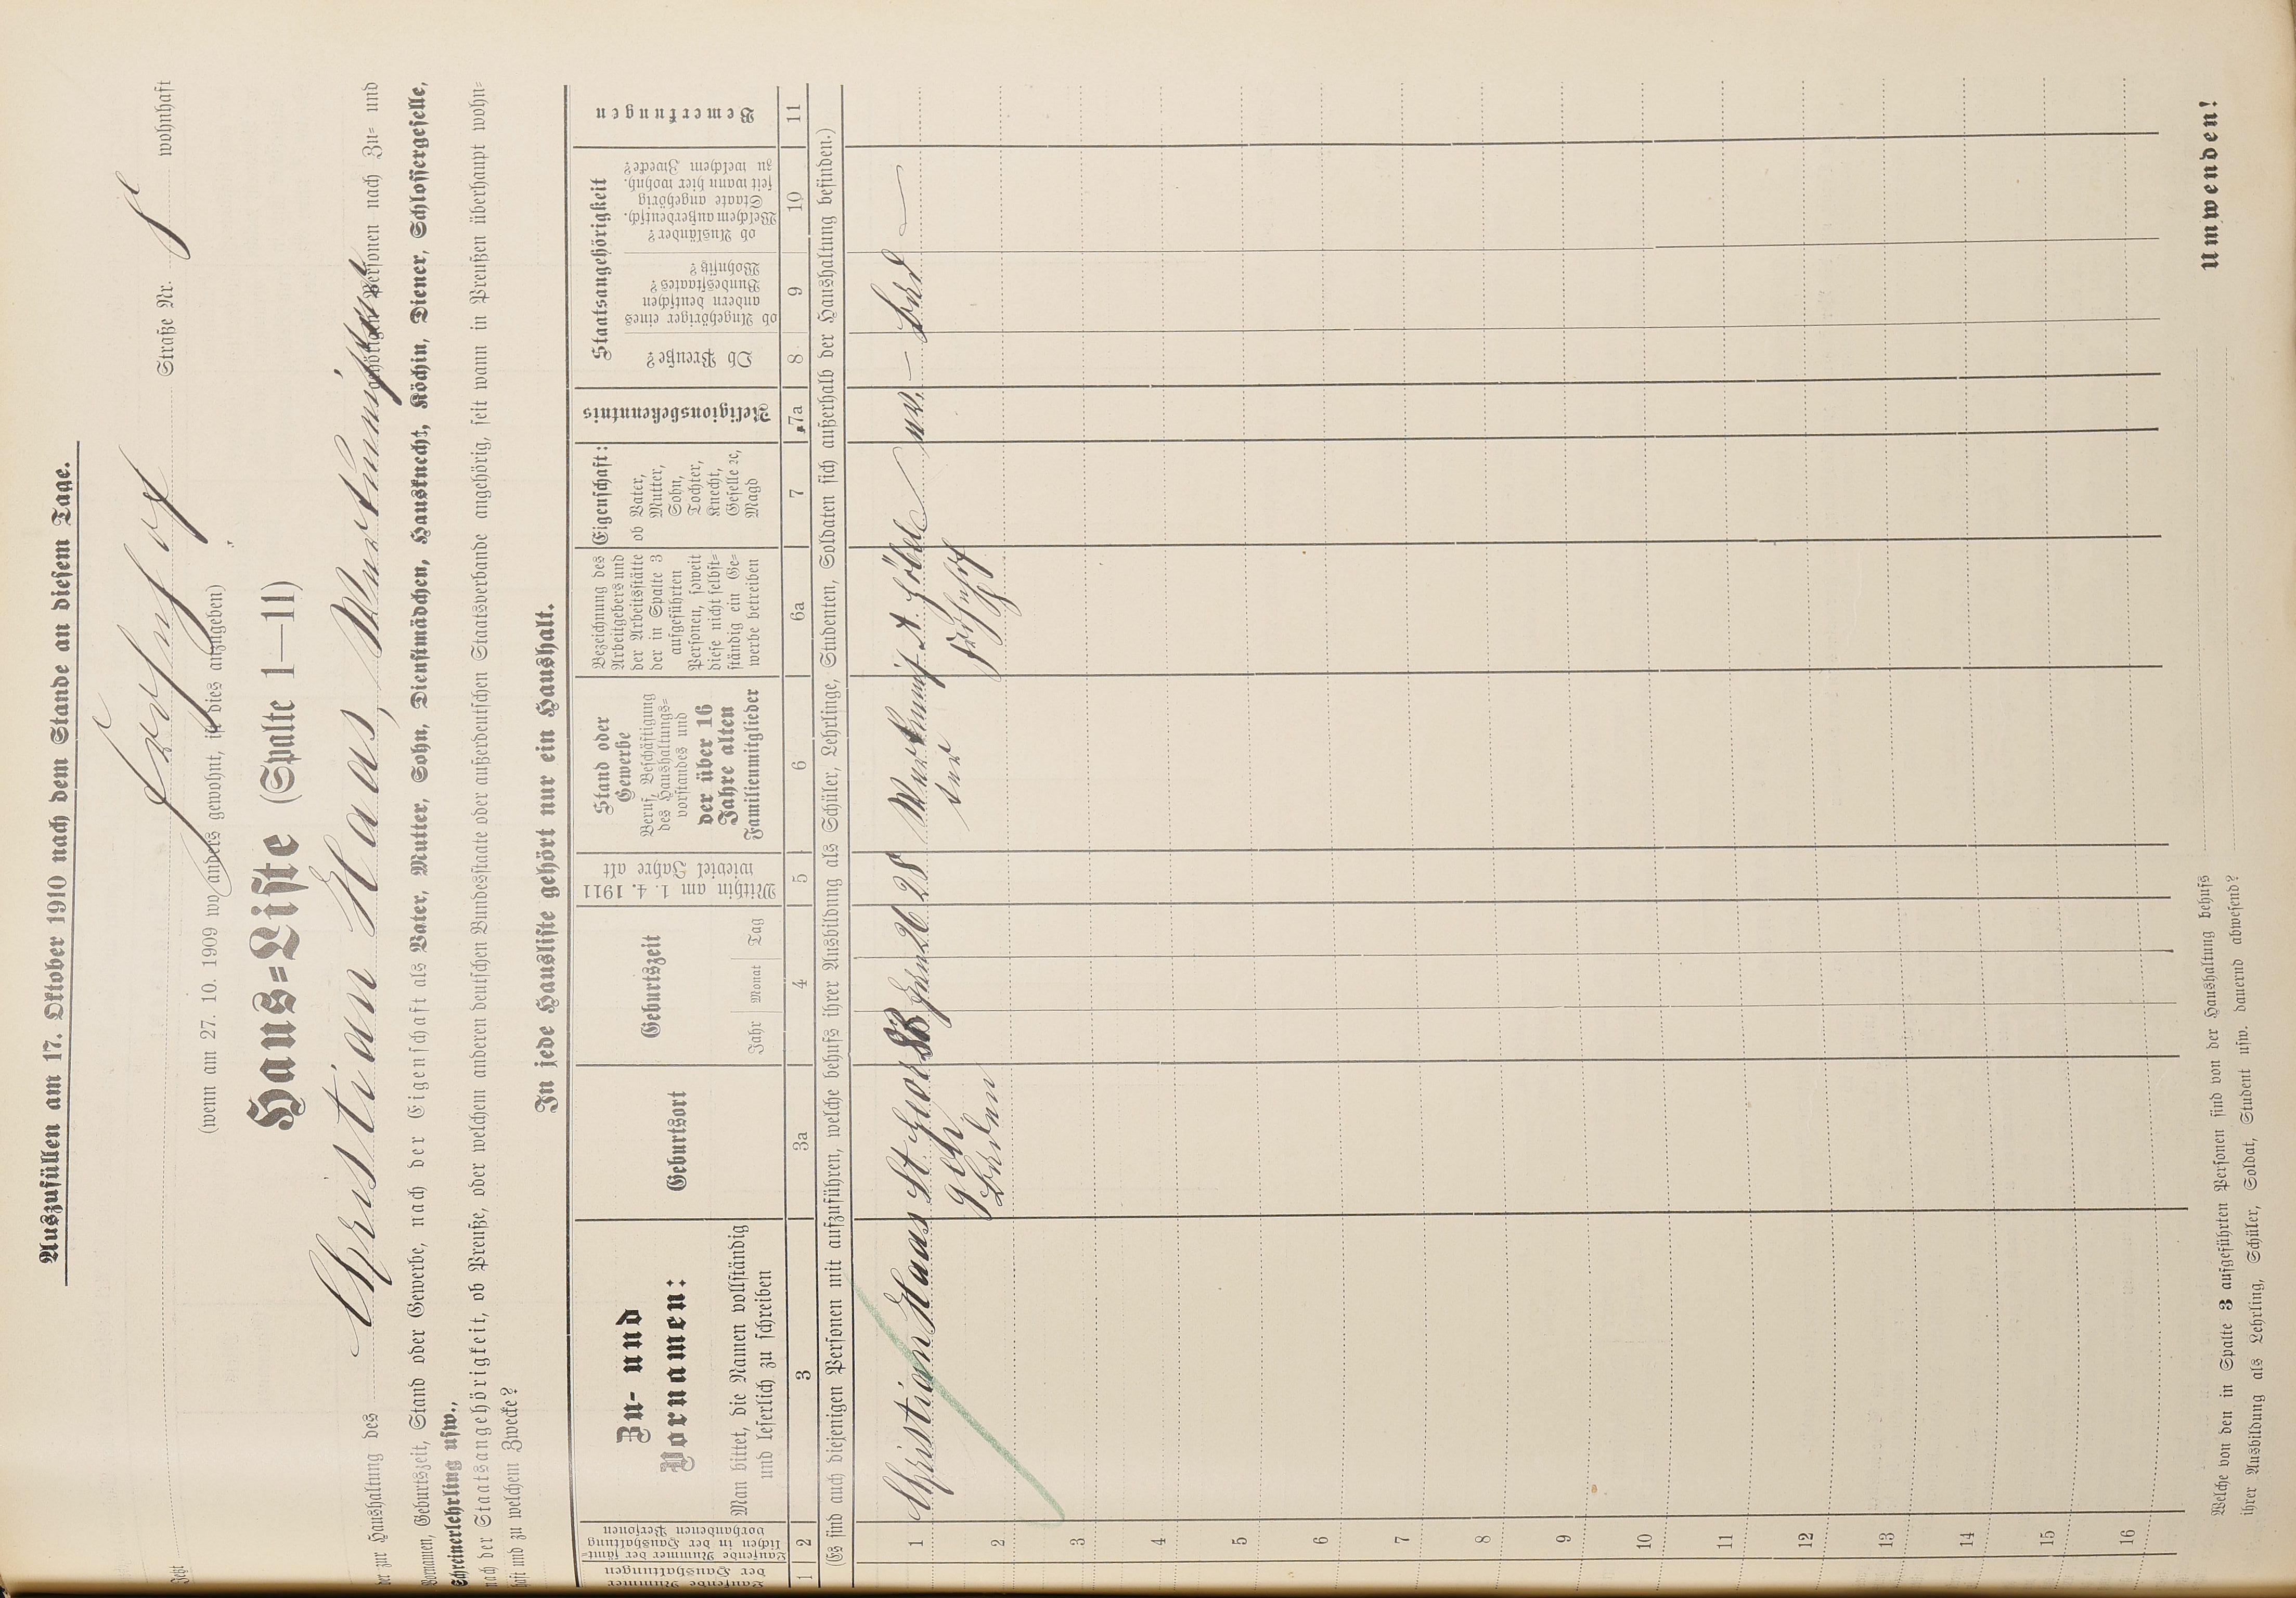 Auszufüllen am 17. Oktober 1910 nach dem Stande an diesem Tage.
Jetzt Straße Nr. 8 wohnhaft
(wenn am 27. 10. 1909 wo anders gewohnt, ist dies anzugeben)
Haus=Liste (Spalte 1—11)
der zur Haushaltung des Christian Haas, gehörigen Personen nach Zu= und
Vornamen, Geburtszeit, Stand oder Gewerbe, nach der Eigenschaft als Vater, Mutter, Sohn, Dienstmädchen, Hausknecht, Köchin, Diener, Schlossergeselle,
Schreinerlehrling usw.,
nach der Staatsangehörigkeit, ob Preuße, oder welchem anderen deutschen Bundesstaate oder außerdeutschen Staatsverbande angehörig, seit wann in Preußen überhaupt wohn=
haft und zu welchem Zwecke?
In jede Hausliste gehört nur ein Haushalt.
Laufende Nummer
der Haushaltungen
Laufende Nummer der sämt=
lichen in der Haushaltung
vorhandenen Personen
Zu- und
Vornamen:
Man bittet, die Namen vollständig
und leserlich zu schreiben
Geburtsort
Geburtszeit
Jahr Monat Tag
Mithin am 1. 4. 1911
wieviel Jahre alt
Stand oder
Gewerbe
Beruf, Beschäftigung
des Haushaltungs=
vorstandes und
der über 16
Jahre alten
Familienmitglieder
Bezeichnung des
Arbeitgebers und
der Arbeitsstätte
der in Spalte 3
aufgeführten
Personen, soweit
diese nicht selbst=
ständig ein Ge=
werbe betreiben
Eigenschaft:
ob Vater,
Mutter,
Sohn,
Tochter,
Knecht,
Geselle 2c,
Magd
Religionsbekenntnis
Staatsangehörigkeit
Ob Preuße?
ob Angehöriger eines
andern deutschen
Bundesstaates?
Wohnsitz?
ob Ausländer?
Welchem außerdeutsch.
Staate angehörig
seit wann hier wohnh.
zu welchem Zwecke?
Bemerkungen
1 2 3 3a 4 5 6 6a 7 7a 8 9 10 11
(Es sind auch diejenigen Personen mit aufzuführen, welche behufs ihrer Ausbildung als Schüler, Lehrlinge, Studenten, Soldaten sich außerhalb der Haushaltung befinden.)
1 Christian Haas St. Geor 83 26 28 ev. — Bad —
gen
Baden
2
3
4
5
6
7
8
9
10
11
12
13
14
15
16
Welche von den in Spalte 3 aufgeführten Personen sind von der Haushaltung behufs
ihrer Ausbildung als Lehrling, Schüler, Soldat, Student usw. dauernd abwesend?
umwenden!